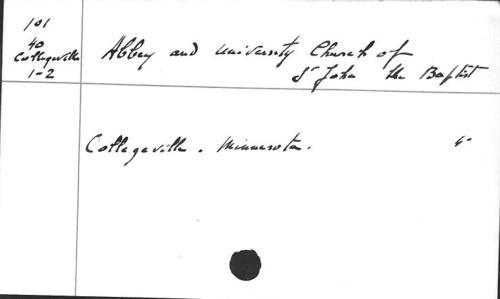 101
40
Collegeville
1-2
Abbey and University Church of
St John the Baptist
Collegeville. Minnesota.